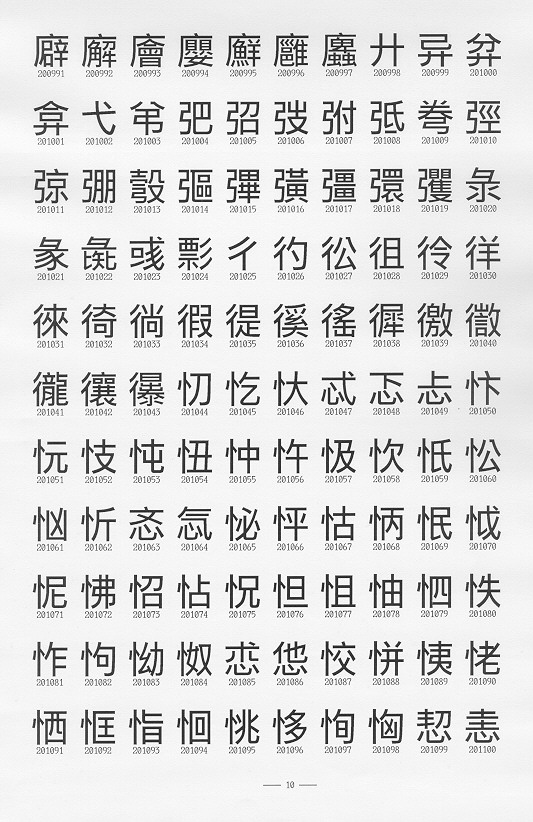 廦 廨 廥 廮 廯 廱 廲 廾 异 弅
200991 200992 200993 200994 200995 200996 200997 200998 200999 201000
弇 弋 弚 弝 弨 弢 弣 弤 弮 弳
201001 201002 201003 201004 201005 201006 201007 201008 201009 201010
弶 弸 彀 彄 彃 彉 彊 彋 彏 彔
201011 201012 201013 201014 201015 201016 201017 201018 201019 201020
彖 彘 彧 彯 彳 彴 彸 徂 彾 徉
201021 201022 201023 201024 201025 201026 201027 201028 201029 201030
徠 徛 徜 徦 徥 徯 徭 徲 徼 徾
201031 201032 201033 201034 201035 201036 201037 201038 201039 201040
徿 忀 忁 忉 忔 忕 忒 忑 忐 忭
201041 201042 201043 201044 201045 201046 201047 201048 201049 201050
忨 忮 忳 忸 忡 忤 忣 忺 忯 忪
201051 201052 201053 201054 201055 201056 201057 201058 201059 201060
忷 忻 忞 忥 怭 怦 怙 怲 怋 怴
201061 201062 201063 201064 201065 201066 201067 201068 201069 201070
怩 怫 怊 怗 怳 怛 怚 怞 怬 怢
201071 201072 201073 201074 201075 201076 201077 201078 201079 201080
怍 怐 怮 怓 怷 怹 恔 恲 恞 恅
201081 201082 201083 201084 201085 201086 201087 201088 201089 201090
恓 恇 恉 恛 恌 恀 恂 恟 恝 恚
201091 201092 201093 201094 201095 201096 201097 201098 201099 201100
— 10 —